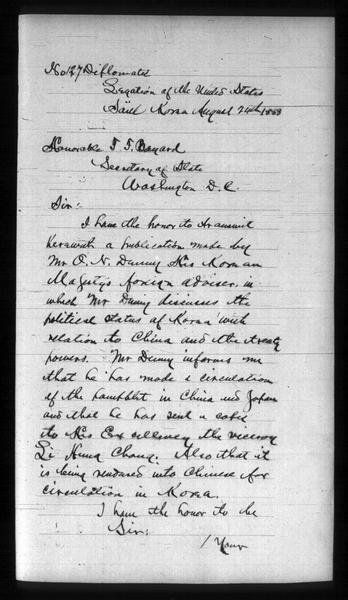 No 27 Diplomatic
Legation of the United States
Söul Korea August 24th 1888
Honorable T. F. Bayard
Secretary of State
Washington D.C.
Sir:
I have the honor to transmit
herewith a publication made by
Mr O. N. Denny His Korean
Majesty's foreign adviser, in
which Mr Denny discusses the
political status of Korea with
relation to China and the treaty
powers. Mr Denny informs me
that he has made a circulation
of the pamphlet in China and Japan
and that he has sent a copie
to His Excellency the viceroy
Li Hung Chang. Also that it
is being rendured into Chinese for
circulation in Korea.
I have the honor to be
Sir:
/ Your